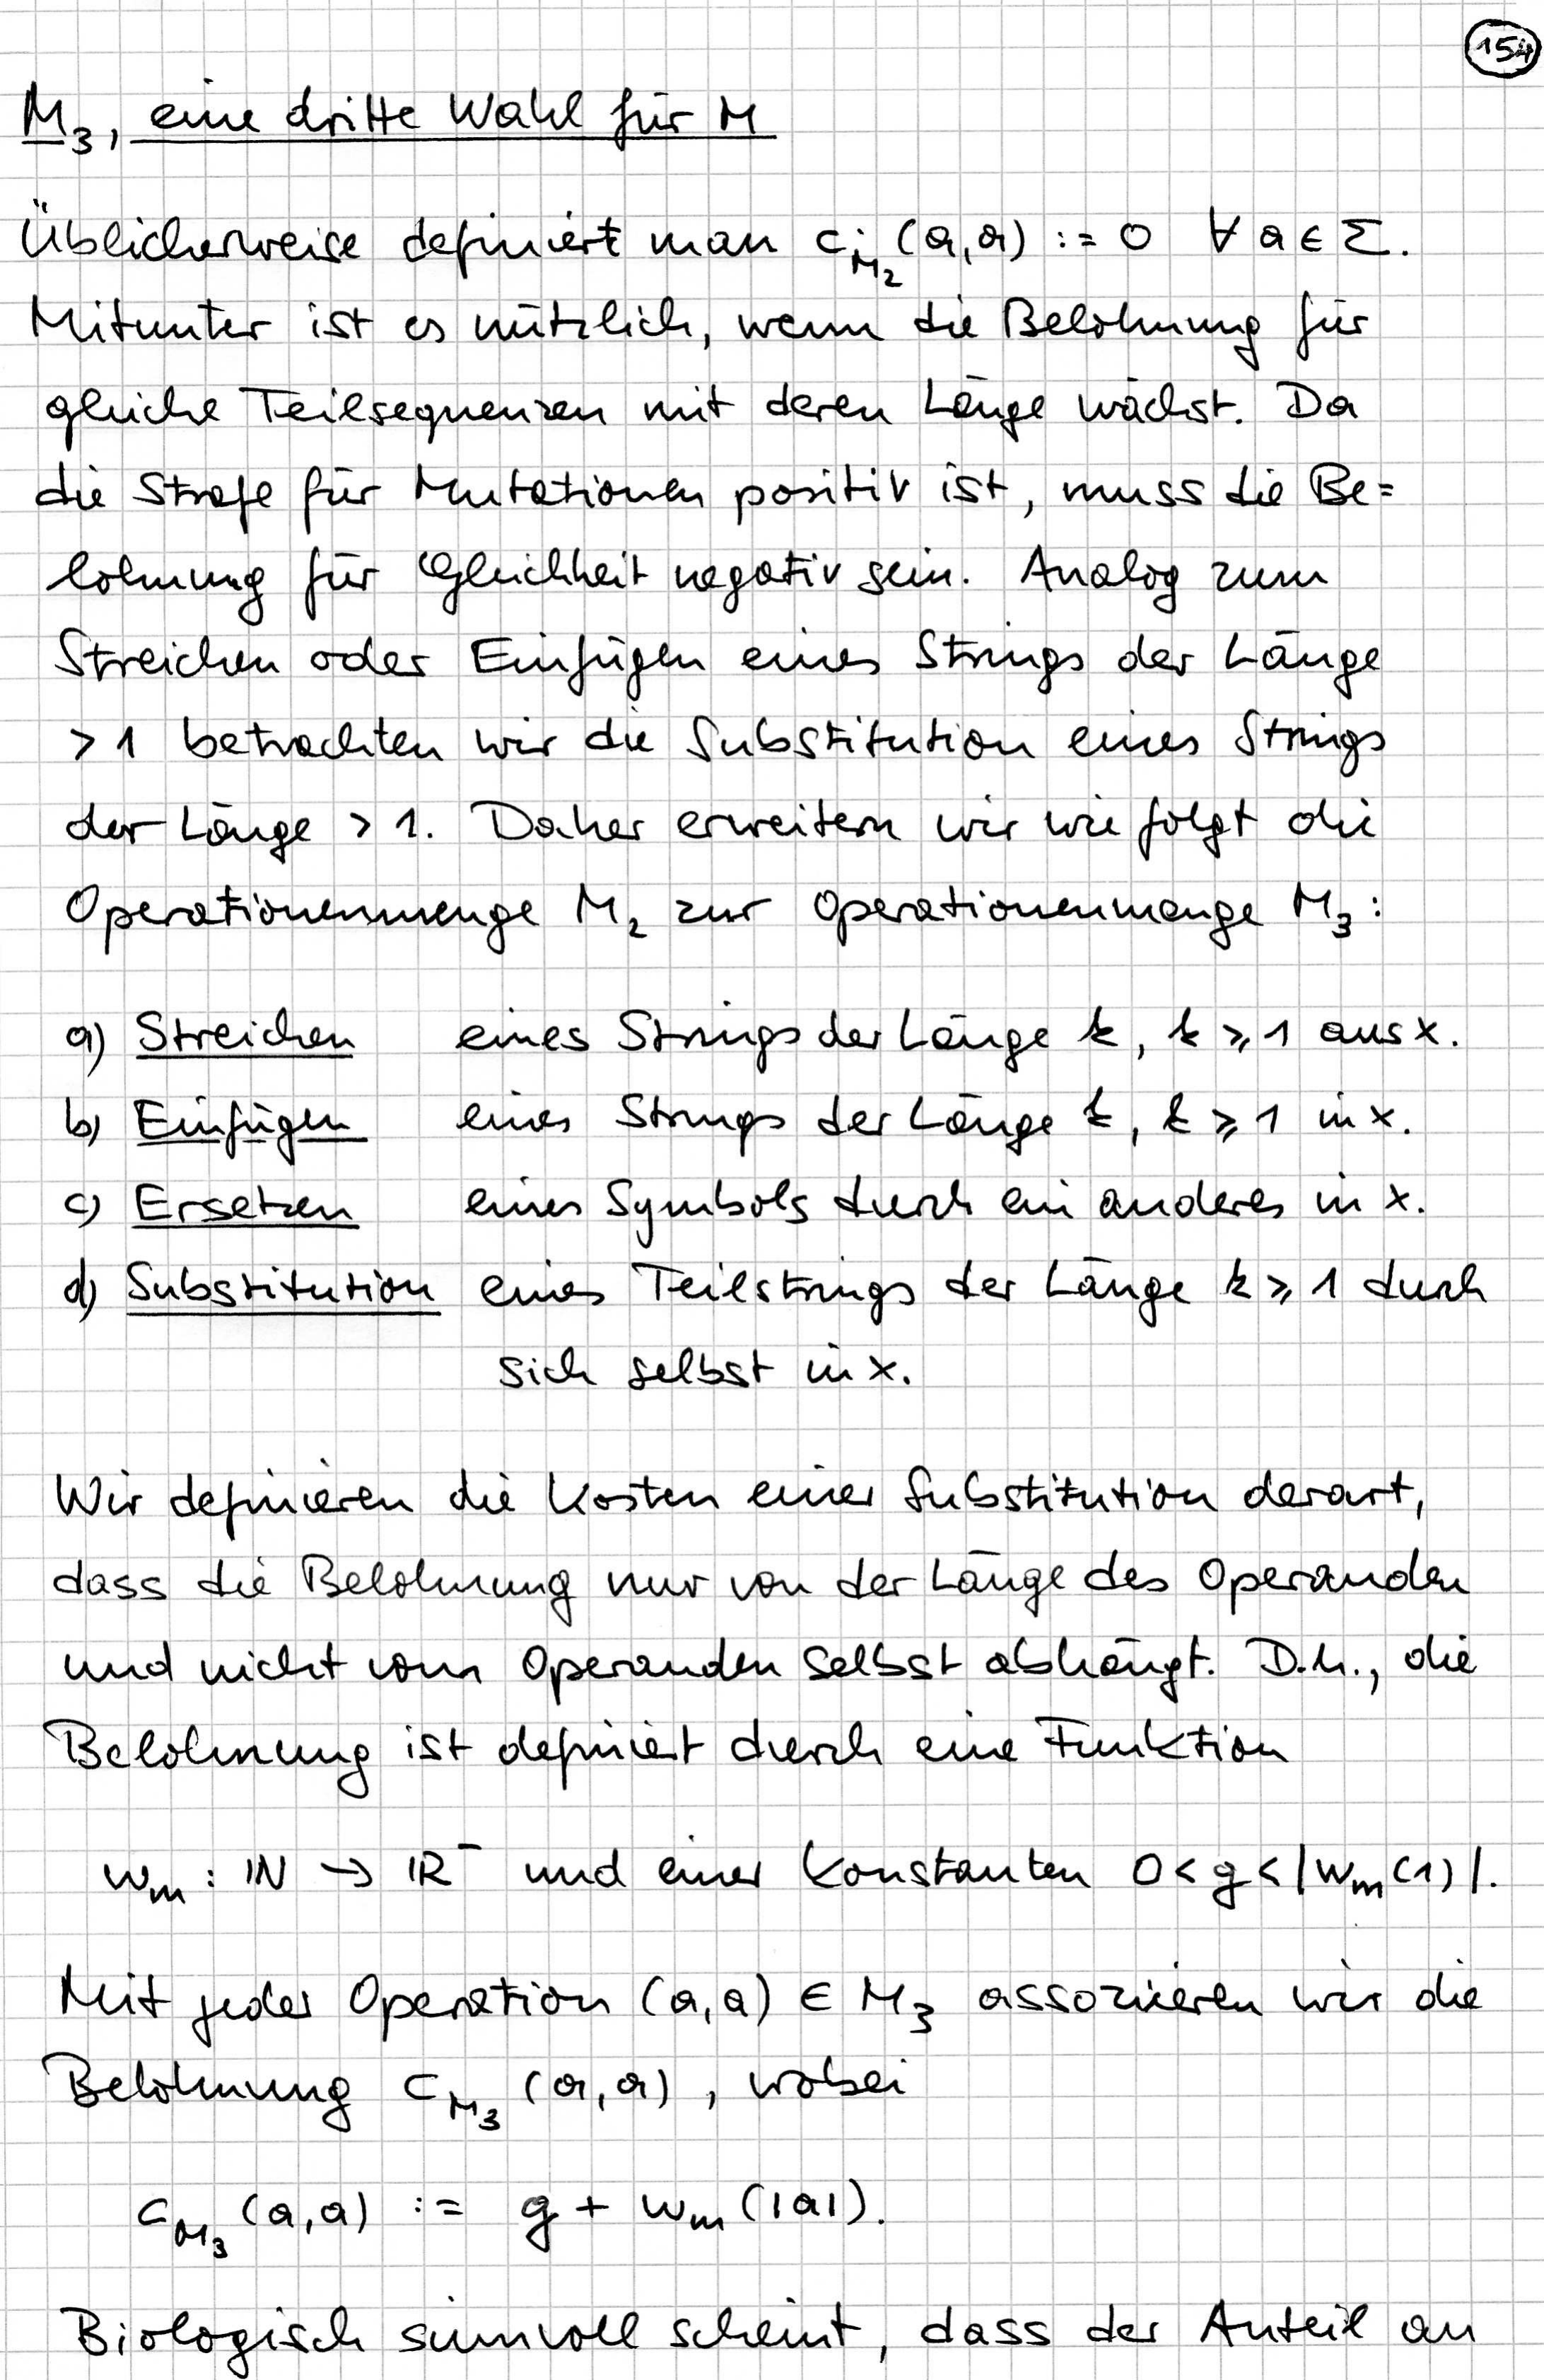 154
M₃, eine dritte Wahl für M
Üblicherweise definiert man c_{M₂}(a,a) := 0 ∀ a ∈ Σ.
Mitunter ist es nützlich, wenn die Belohnung für
gleiche Teilsequenzen mit deren Länge wächst. Da
die Strafe für Mutationen positiv ist, muss die Be=
lohnung für Gleichheit negativ sein. Analog zum
Streichen oder Einfügen eines Strings der Länge
> 1 betrachten wir die Substitution eines Strings
der Länge > 1. Daher erweitern wir wie folgt die
Operationenmenge M₂ zur Operationenmenge M₃:
a) Streichen eines Strings der Länge k, k ≥ 1 aus x.
b) Einfügen eines Strings der Länge k, k ≥ 1 in x.
c) Ersetzen eines Symbols durch ein anderes in x.
d) Substitution eines Teilstrings der Länge k ≥ 1 durch
sich selbst in x.
Wir definieren die Kosten einer Substitution derart,
dass die Belohnung nur von der Länge des Operanden
und nicht vom Operanden selbst abhängt. D.h., die
Belohnung ist definiert durch eine Funktion
w_m : ℕ → ℝ⁻ und einer Konstanten 0 < g < |w_m(1)|.
Mit jeder Operation (a,a) ∈ M₃ assoziieren wir die
Belohnung c_{M₃}(a,a), wobei
c_{M₃}(a,a) := g + w_m(|a|).
Biologisch sinnvoll scheint, dass der Anteil an